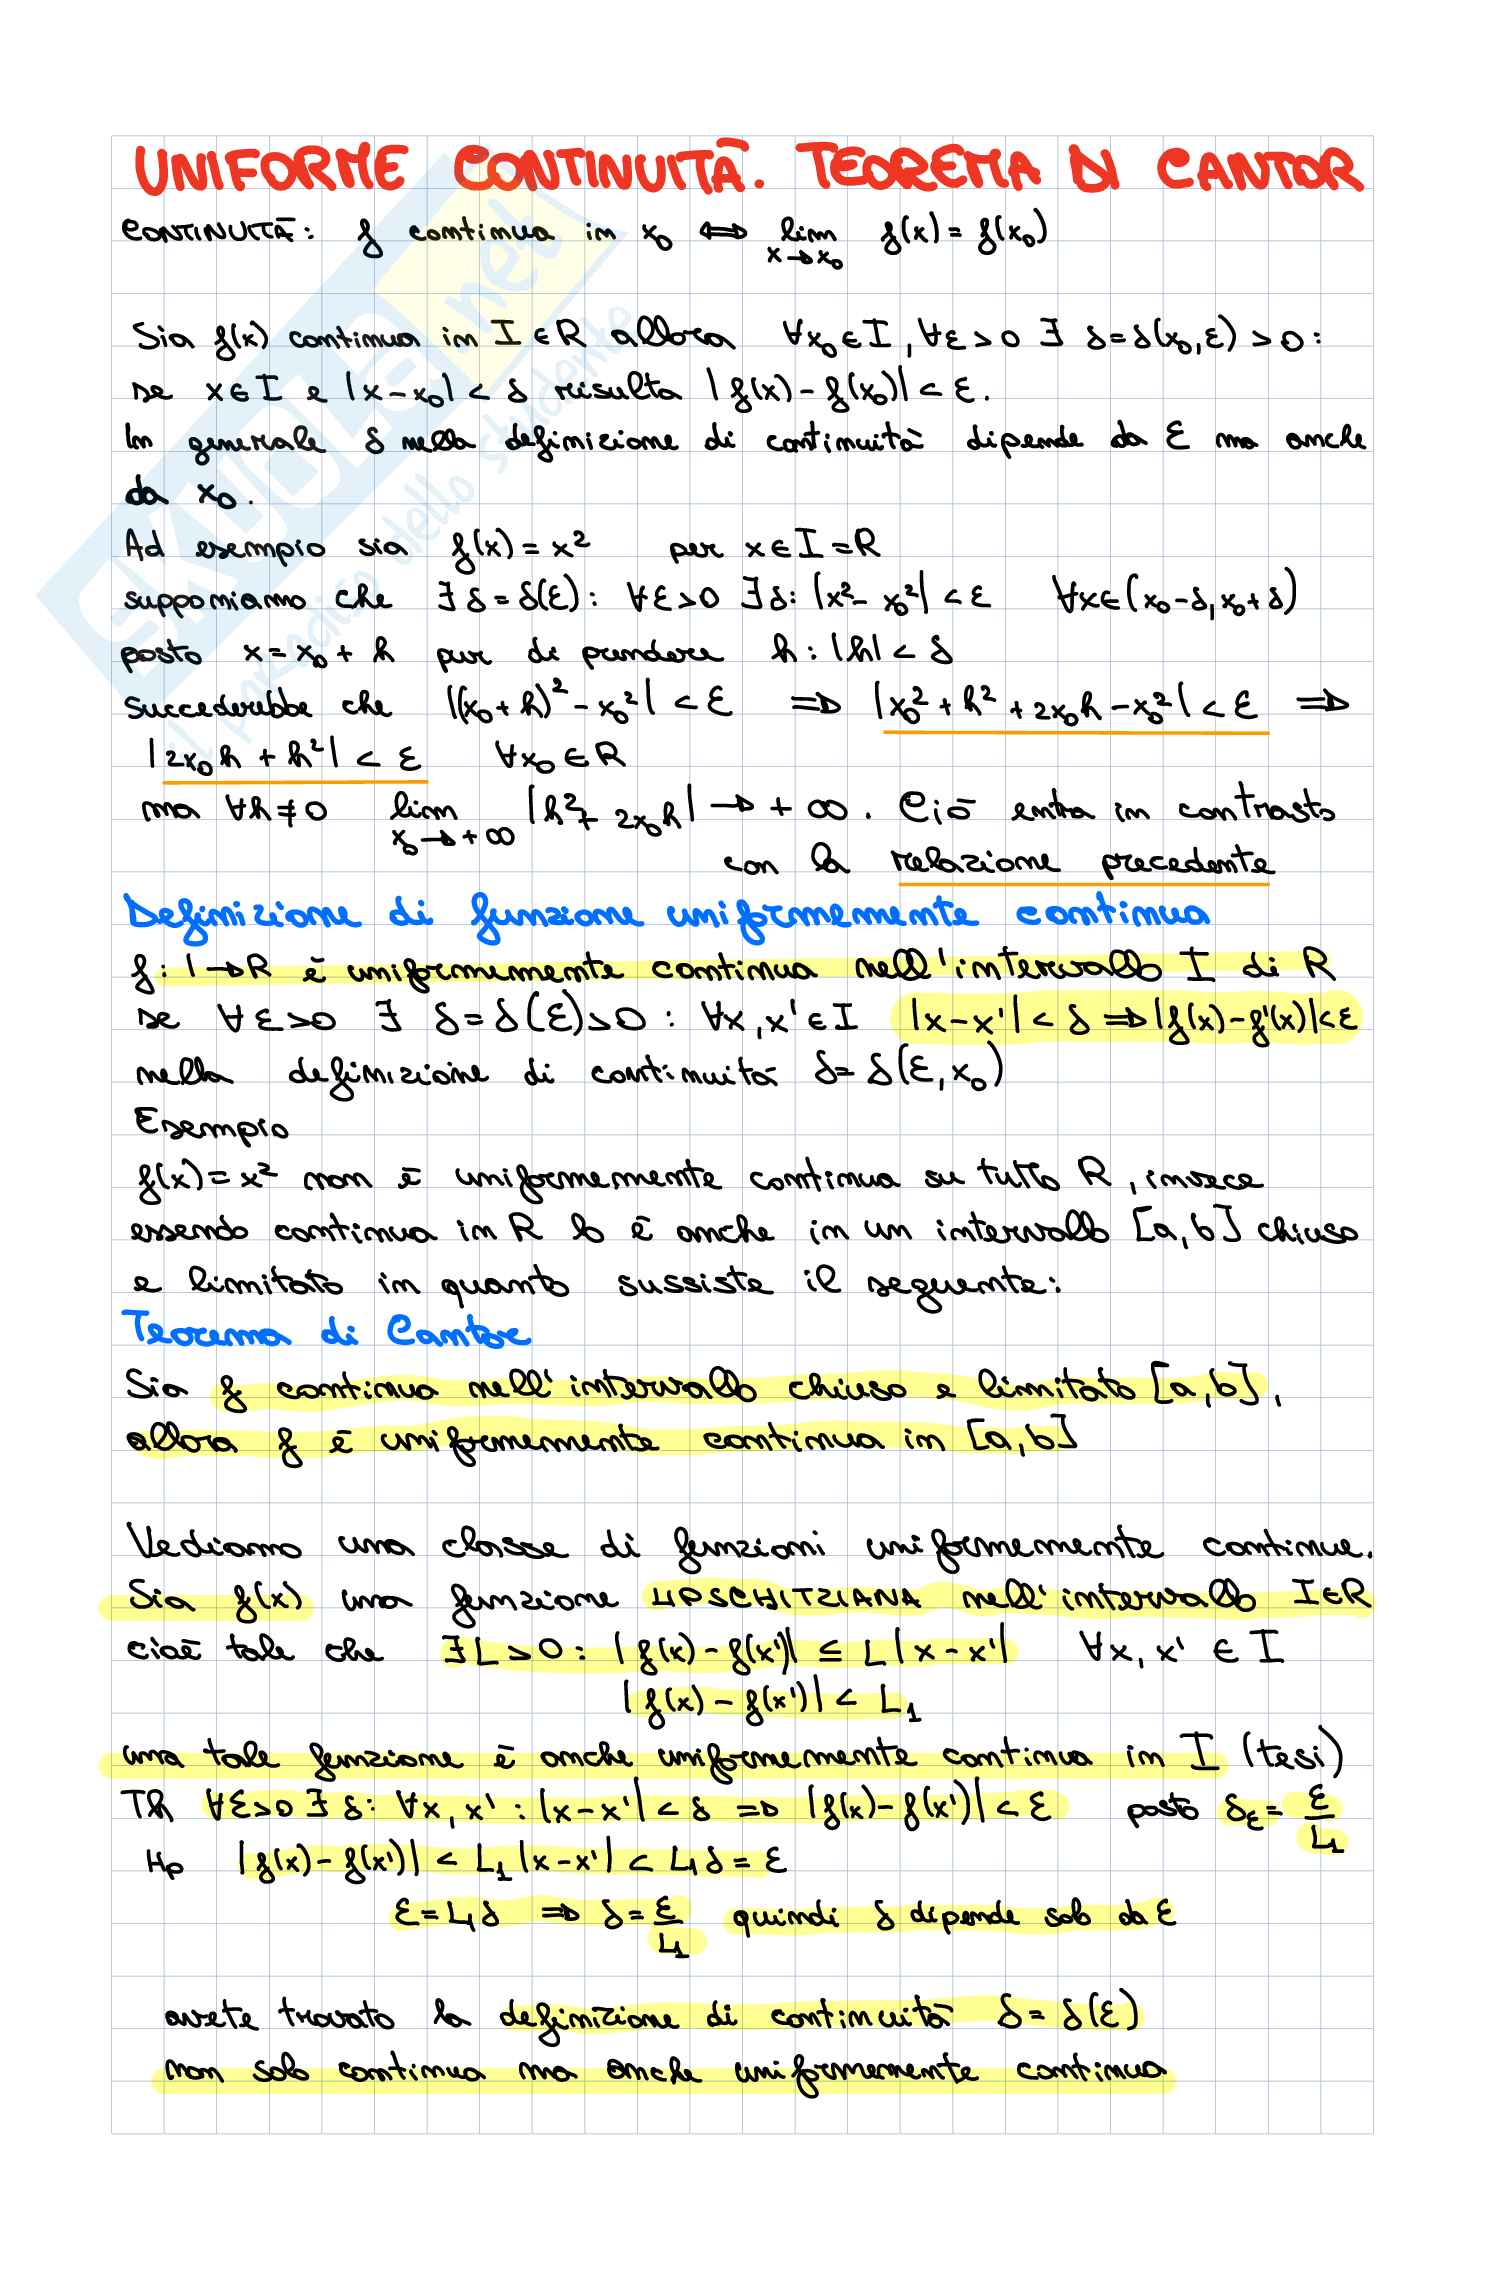 UNIFORME CONTINUITÀ. TEOREMA DI CANTOR
CONTINUITÀ: f continua in x₀ ⇔ lim f(x) = f(x₀)
x→x₀
Sia f(x) continua in I ∈ R allora ∀x₀ ∈ I, ∀ε > 0 ∃ δ = δ(x₀, ε) > 0:
se x ∈ I e |x - x₀| < δ risulta |f(x) - f(x₀)| < ε.
In generale δ nella definizione di continuità dipende da ε ma anche
da x₀.
Ad esempio sia f(x) = x² per x ∈ I = R
supponiamo che ∃ δ = δ(ε): ∀ε > 0 ∃ δ: |x² - x₀²| < ε ∀x ∈ (x₀ - δ, x₀ + δ)
posto x = x₀ + h pur di prendere h: |h| < δ
succederebbe che |(x₀ + h)² - x₀²| < ε ⇒ |x₀² + h² + 2x₀h - x₀²| < ε ⇒
|2x₀h + h²| < ε ∀x₀ ∈ R
ma ∀h ≠ 0 lim |h² + 2x₀h| → + ∞. Ciò entra in contrasto
x₀→+∞
con la relazione precedente
Definizione di funzione uniformemente continua
f: I → R è uniformemente continua nell'intervallo I di R
se ∀ε > 0 ∃ δ = δ(ε) > 0: ∀x, x' ∈ I |x - x'| < δ ⇒ |f(x) - f'(x)| < ε
nella definizione di continuità δ = δ(ε, x₀)
Esempio
f(x) = x² non è uniformemente continua su tutto R, invece
essendo continua in R lo è anche in un intervallo [a, b] chiuso
e limitato in quanto sussiste il seguente:
Teorema di Cantor
Sia f continua nell'intervallo chiuso e limitato [a, b],
allora f è uniformemente continua in [a, b]
Vediamo una classe di funzioni uniformemente continue.
Sia f(x) una funzione LIPSCHITZIANA nell'intervallo I ∈ R
cioè tale che ∃ L > 0: |f(x) - f(x')| ≤ L |x - x'| ∀x, x' ∈ I
|f(x) - f(x')| < L₁
una tale funzione è anche uniformemente continua in I (tesi)
Th ∀ε > 0 ∃ δ: ∀x, x': |x - x'| < δ ⇒ |f(x) - f(x')| < ε posto δ_ε = ε/L₁
Hp |f(x) - f(x')| < L₁ |x - x'| < L₁δ = ε
ε = L₁δ ⇒ δ = ε/L₁ quindi δ dipende solo da ε
avete trovato la definizione di continuità δ = δ(ε)
non solo continua ma anche uniformemente continua
SKUOLA.net
il paradiso dello studente